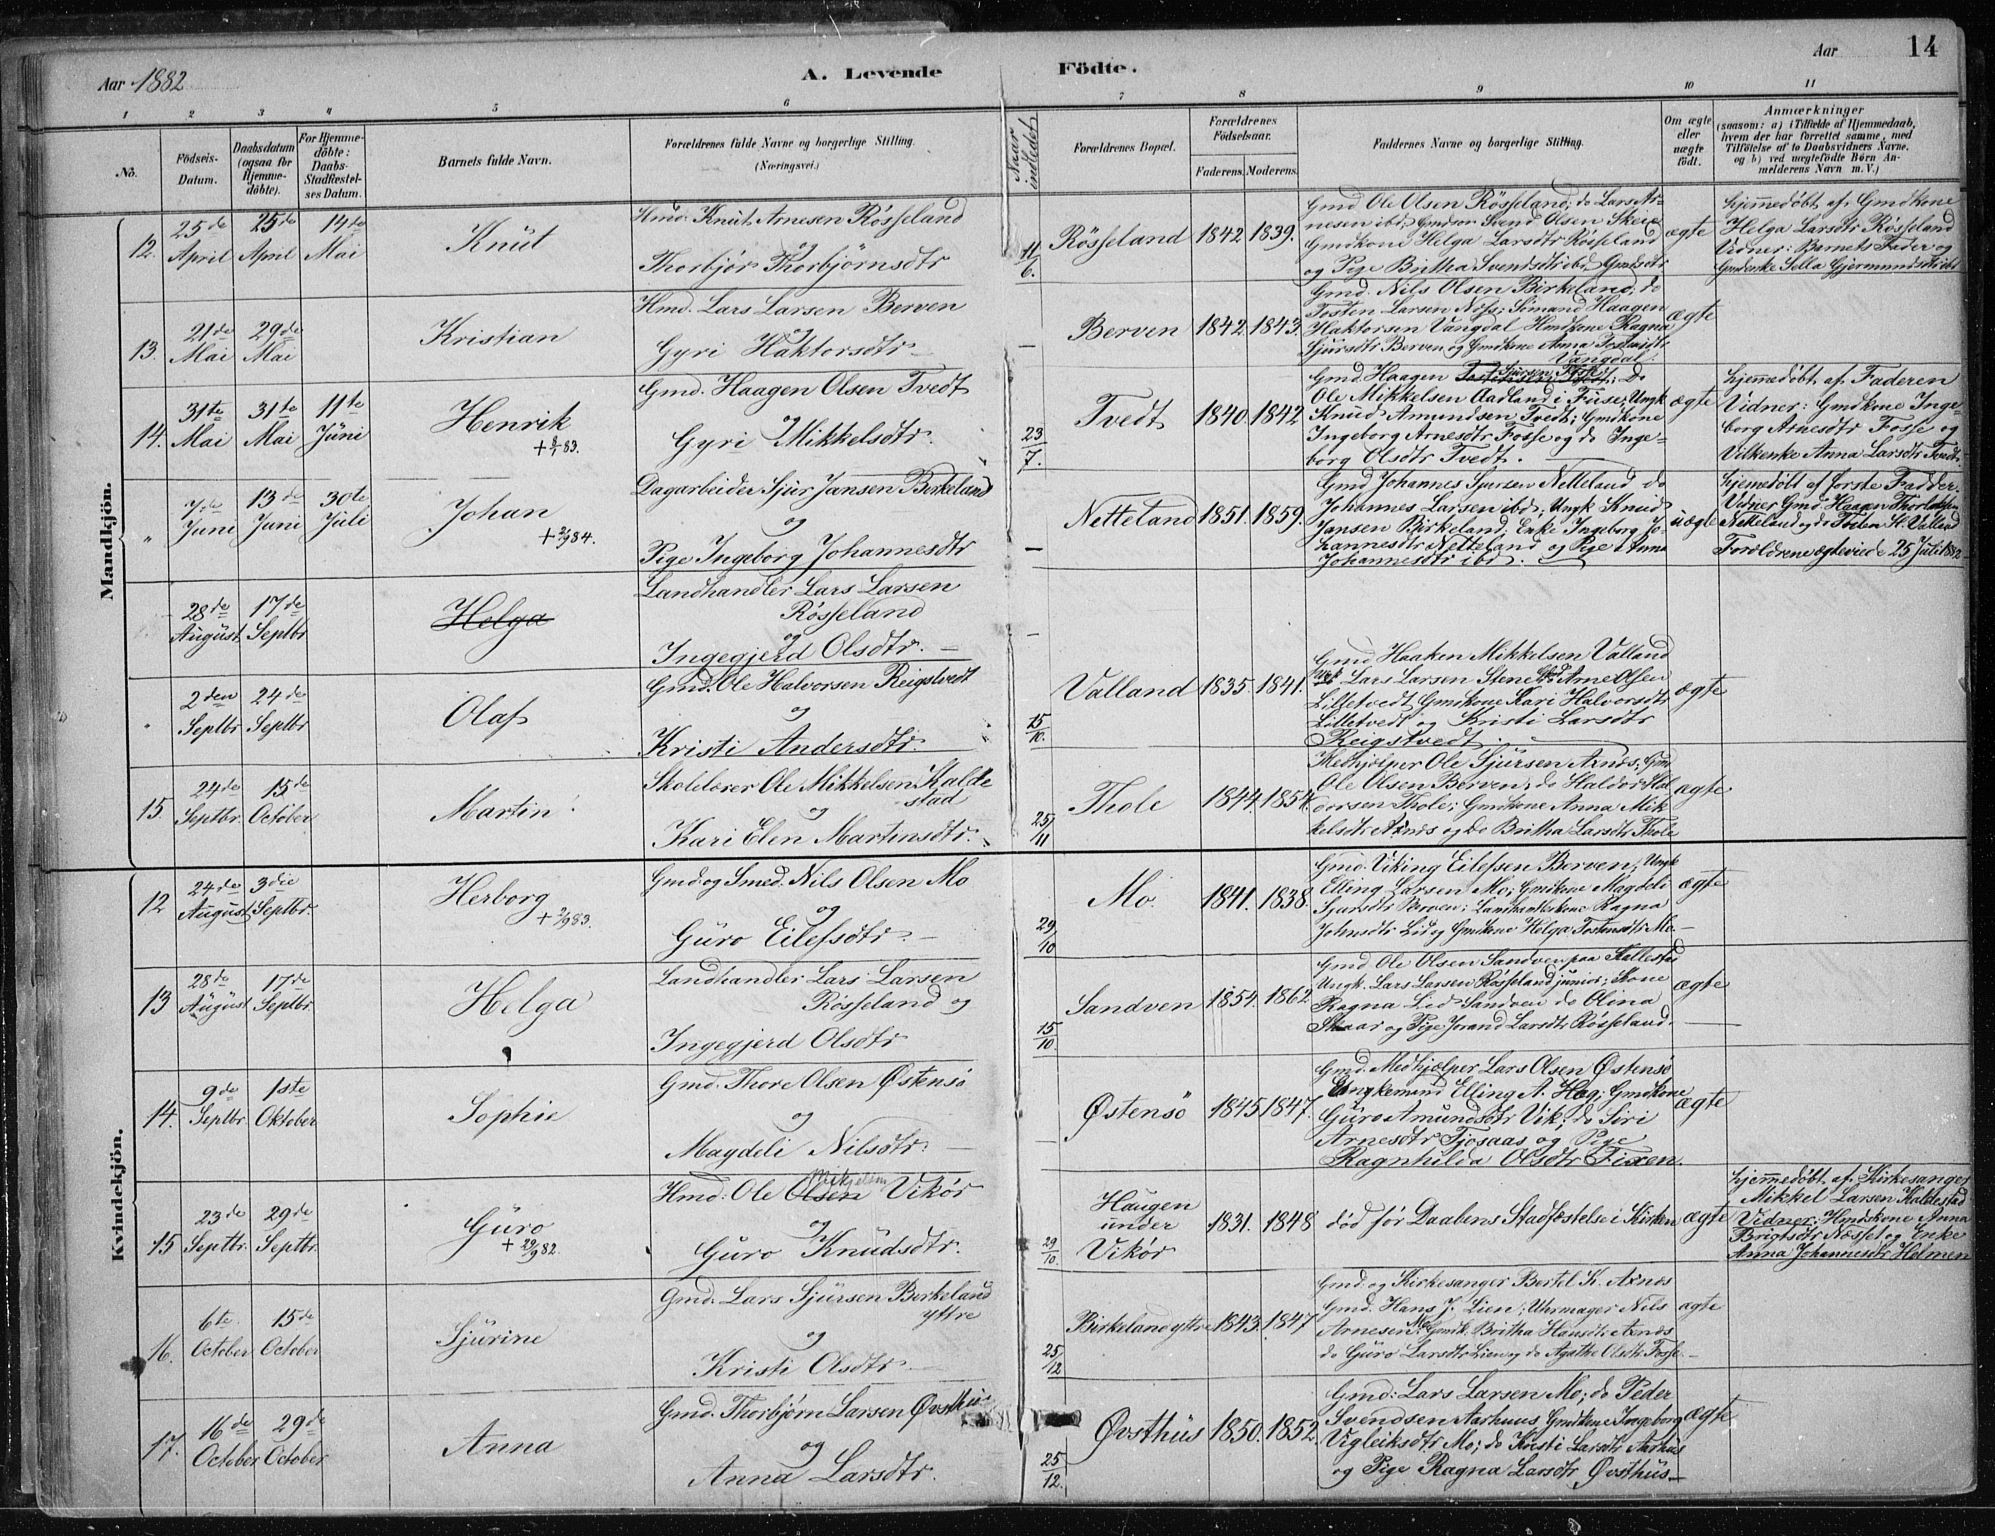 14
Aar 1882
A. Levende Födte.
Aar
1 2 3 4 5 6 7 8 9 10 11
No.
Födsels-
Datum.
Daabsdatum
(ogsaa for
Hjemme-
döbte).
For Hjemme-
döbte:
Daabs-
Stadfæstel-
ses Datum.
Barnets fulde Navn.
Forældrenes fulde Navne og borgerlige Stilling.
(Næringsvei.)
Naar
indledet
Forældrenes Bopæl.
Forældrenes
Födselsaar.
Faderens. Moderens.
Faddernes Navne og borgerlige Stilling.
Om ægte
eller
uægte
födt.
Anmærkninger
(saasom: a) i Tilfælde af Hjemmedaab,
hvem der har forrettet samme, med
Tilföielse af to Daabsvidners Navne,
og b) ved uægtefödte Börn An-
melderens Navn m.V.)
Mandkjön.
12.
25de
April
25de
April
14de
Mai
Knut
Hmd. Knut Arnesen Røsseland
og
Thorbjør Thorbjörnsdtr
11/6.
Røsseland
1842
1839.
Gmd Ole Olsen Røsseland; do Lars Ar-
nesen ibd; Gmdsøn Svend Olsen Skeie
Gmdkone Helga Larsdtr Røsseland
og Pige Britha Svendsdtr ibd, Gmdsdtr
ægte
hjemmedøbt af Gmdkone
Helga Larsdtr Røsseland
Vidner: Barnets Fader og
Gmdenke Sella Gjermundsdtr ibd
13.
21de
Mai
29de
Mai
Kristian
Hmd. Lars Larsen Berven
og
Gyri Haktorsdtr
Berven
1842.
1843.
Gmd. Nils Olsen Birkeland; do
Tosten Larsen Næss; Simand Haagen
Haktorsen Vangdal Hmdkone Ragna
Sjursdtr Berven og Gmdkone Anna Tostensdtr
Vangdal.
ægte
14.
31te
Mai
31te
Mai
11te
Juni
Henrik
+ 8/1 83.
Gmd. Haagen Olsen Tvedt
og
Gyri Mikkelsdtr.
23/7.
Tvedt
1840.
1842
Gmd. Haagen
Ole Mikkelsen Aadland i Fuse; Ungk
Knud Amundsen Tvedt; Gmdkone
Ingeborg Arnesdtr Fosse og do Inge-
borg Olsdtr Tvedt.
ægte
hjemmedøbt af Faderen
Vidner: Gmdkone Inge-
borg Arnesdtr Fosse og
Vilkenke Anna Larsdtr Tvedt.
"
7de
Juni
13de
Juni
30te
Juli
Johan
+ 2/9 84.
Dagarbeider Sjur Jansen Birkeland
og
Pige Ingeborg Johannesdtr
Netteland
1851.
1859.
Gmd Johannes Sjursen Netteland do
Johannes Larsen ibd; Ungk Knud
Jansen Birkeland, Enke Ingeborg Jo-
hannesdtr Netteland og Pige Anna
Johannesdtr ibd.
uægte
hjemmedøbt af første Fadder.
Vidner Gmd. Haagen
Netteland og do Tosten H. Valland
Forældrene ægteviede 25 Juli 1882
28de
August
17de
Septbr
Helga
Landhandler Lars Larsen
Røsseland
og
Ingegjerd Olsdtr.
"
2den
Septbr
24de
Septbr
Olaf
Gmd. Ole Halvorsen Reigstvedt
og
Kristi Andersdtr.
15/10.
Valland
1835.
1841.
Gmd Haaken Mikkelsen Valland
Ungk. Lars Larsen Stene Gmd Arne Olsen
Lilletvedt Gmdkone Kari Halvorsdtr
Lilletvedt og Kristi Larsdtr
Reigstvedt.
ægte
15
24de
Septbr.
15de
October
Martin
Skolelærer Ole Mikkelsen Kalde
stad
og
Kari Elen Martinsdtr.
25/11
Thole
1844.
1854.
Medhjælper Ole Sjursen Axnes, Gmd
Ole Olsen Berven, do Haldor Hal
dorsen Thole; Gmdkone Anna Mik
kelsdtr Axnes og do Britha Larsdtr Thole
ægte
Kvindekjön.
12
24de
August
3die
Septbr.
Herborg
+ 2/9 83.
Gmd. og Smed. Nils Olsen Mo
og
Guro Eilefsdtr.
29/10
Mo
1841.
1838.
Gmd. Viking Eilefsen Berven; Ungk
Elling Larsen Mo; Gmdkone Magdeli
Sjursdtr Berven; Landhandlerkone Ragna
Johnsdtr Lid og Gmdkone Helga Tostensdtr Mo.
ægte
13
28de
August
17de
Septbr.
Helga
Landhandler Lars Larsen
Røsseland og
Ingegjerd Olsdtr
15/10.
Sandven
1854.
1862
Gmd Ole Olsen Sandven paa Kallestad
Ungk. Lars Larsen Røsseland junior; Kone
Ragna Lid Sandven do Olina
Skaar og Pige Jorand Larsdtr Røsseland.
ægte
14.
9de
Septbr
1ste
Oktober
Sophie
Gmd. Thore Olsen Østensö
og
Magdeli Nilsdtr.
Østensö
1845
1847.
Gmd. Medhjælper Lars Olsen Østensö
Ungkemand Elling A. Hæg; Gmdkone
Guro Amundsdtr Vik; do Siri
Arnesdtr Tjosaas og Pige
Ragnhilda Olsdtr Fixen.
ægte
15
23de
Septbr.
29de
Septbr.
Guro
+ 29/9 82.
Hmd. Ole Olsen Mikjelsen Vikør
og
Guro Knudsdtr.
29/10.
Haugen
under
Vikør
1831.
1848
død før Daabens Stadfæstelse i Kirken
ægte
hjemmedøbt af Kirkesanger
Mikkel Larsen Kaldestad
Vidner: Hmdskone Anna
Brigtsdtr Næsset og Enke
Anna Johannesdtr Holmen
16.
6te.
October
15de
October
Sjurine
Gmd. Lars Sjursen Birkeland
yttre
og
Kristi Olsdtr
25/12
Birkeland yttre
1843.
1847
Gmd og Kirkesanger Bertel K. Axnes
Gmd. Hans J. Lien; Uhrmager Nils
Arnesen Mo; Gmdk. Britha Hansdtr Axnes
do Guro Larsdtr Lien og do Agathe Olsdtr Fosse
ægte
17.
16de
October
29de
October
Anna
Gmd. Thorbjørn Larsen Øvsthus
og
Anna Larsdtr.
25/12.
Øvsthus
1850.
1852.
Gmd: Lars Larsen Mo; do Peder
Svendsen Aarhuus Gmdkone Ingeborg
Vigleiksdtr Mo; do Kristi Larsdtr Aarhus
og Pige Ragna Larsdtr Øvsthus
ægte